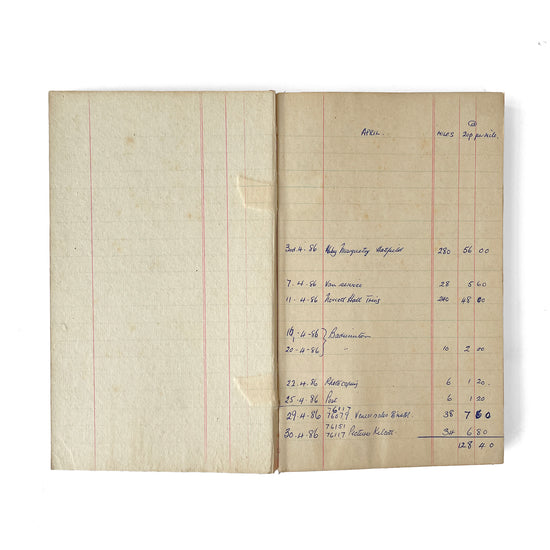 @
APRIL. MILES 20p. per mile.
3rd. 4. 86 Hatfield 280 56 00
7. 4. 86 Van service 28 5 60
11. 4. 86 Hall Tring 240 48 00
16. 4. 86 } Badminton
20. 4. 86 } " 10 2 00
22. 4. 86 Photocopying 6 1 20.
25. 4. 86 Post 6 1 20
76117
29. 4. 86 76079 38 7 60
76151
30. 4. 86 76117 34 6 80
128 40